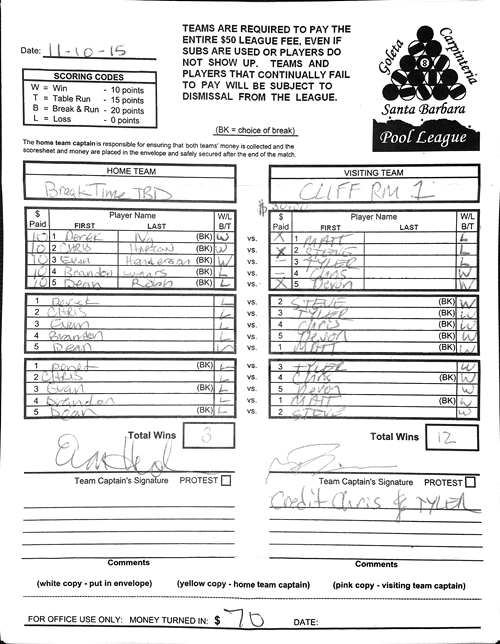 TEAMS ARE REQUIRED TO PAY THE
ENTIRE $50 LEAGUE FEE, EVEN IF
SUBS ARE USED OR PLAYERS DO
NOT SHOW UP. TEAMS AND
PLAYERS THAT CONTINUALLY FAIL
TO PAY WILL BE SUBJECT TO
DISMISSAL FROM THE LEAGUE.
(BK = choice of break)
Date: 11-10-15
SCORING CODES
W = Win - 10 points
T = Table Run - 15 points
B = Break & Run - 20 points
L = Loss - 0 points
Goleta Carpinteria
8
Santa Barbara
Pool League
The home team captain is responsible for ensuring that both teams' money is collected and the
scoresheet and money are placed in the envelope and safely secured after the end of the match.
HOME TEAM VISITING TEAM
Break Time TBD CLIFF RM 1
$ Paid Player Name FIRST LAST W/L B/T $ Paid Player Name FIRST LAST W/L B/T
10 1 Derek (BK) W vs. X 1 MATT L
10 2 CHRIS (BK) W vs. X 2 STEVE L
10 3 Evan Henderson (BK) W vs. - 3 TYLER L
10 4 Brandon (BK) L vs. - 4 Chris W
10 5 Dean (BK) L vs. X 5 Devon W
1 Derek L vs. 2 STEVE (BK) W
2 CHRIS L vs. 3 TYLER (BK) W
3 Evan L vs. 4 Chris (BK) W
4 Brandon L vs. 5 Devon (BK) W
5 Dean L vs. 1 MATT (BK) W
1 Derek (BK) L vs. 3 TYLER W
2 CHRIS L vs. 4 Chris (BK) W
3 Evan (BK) L vs. 5 Devon W
4 Brandon L vs. 1 MATT (BK) W
5 Dean (BK) L vs. 2 STEVE W
Total Wins 3 Total Wins 12
Team Captain's Signature PROTEST Team Captain's Signature PROTEST
Credit Chris & TYLER
Comments Comments
(white copy - put in envelope) (yellow copy - home team captain) (pink copy - visiting team captain)
FOR OFFICE USE ONLY: MONEY TURNED IN: $ 70 DATE: